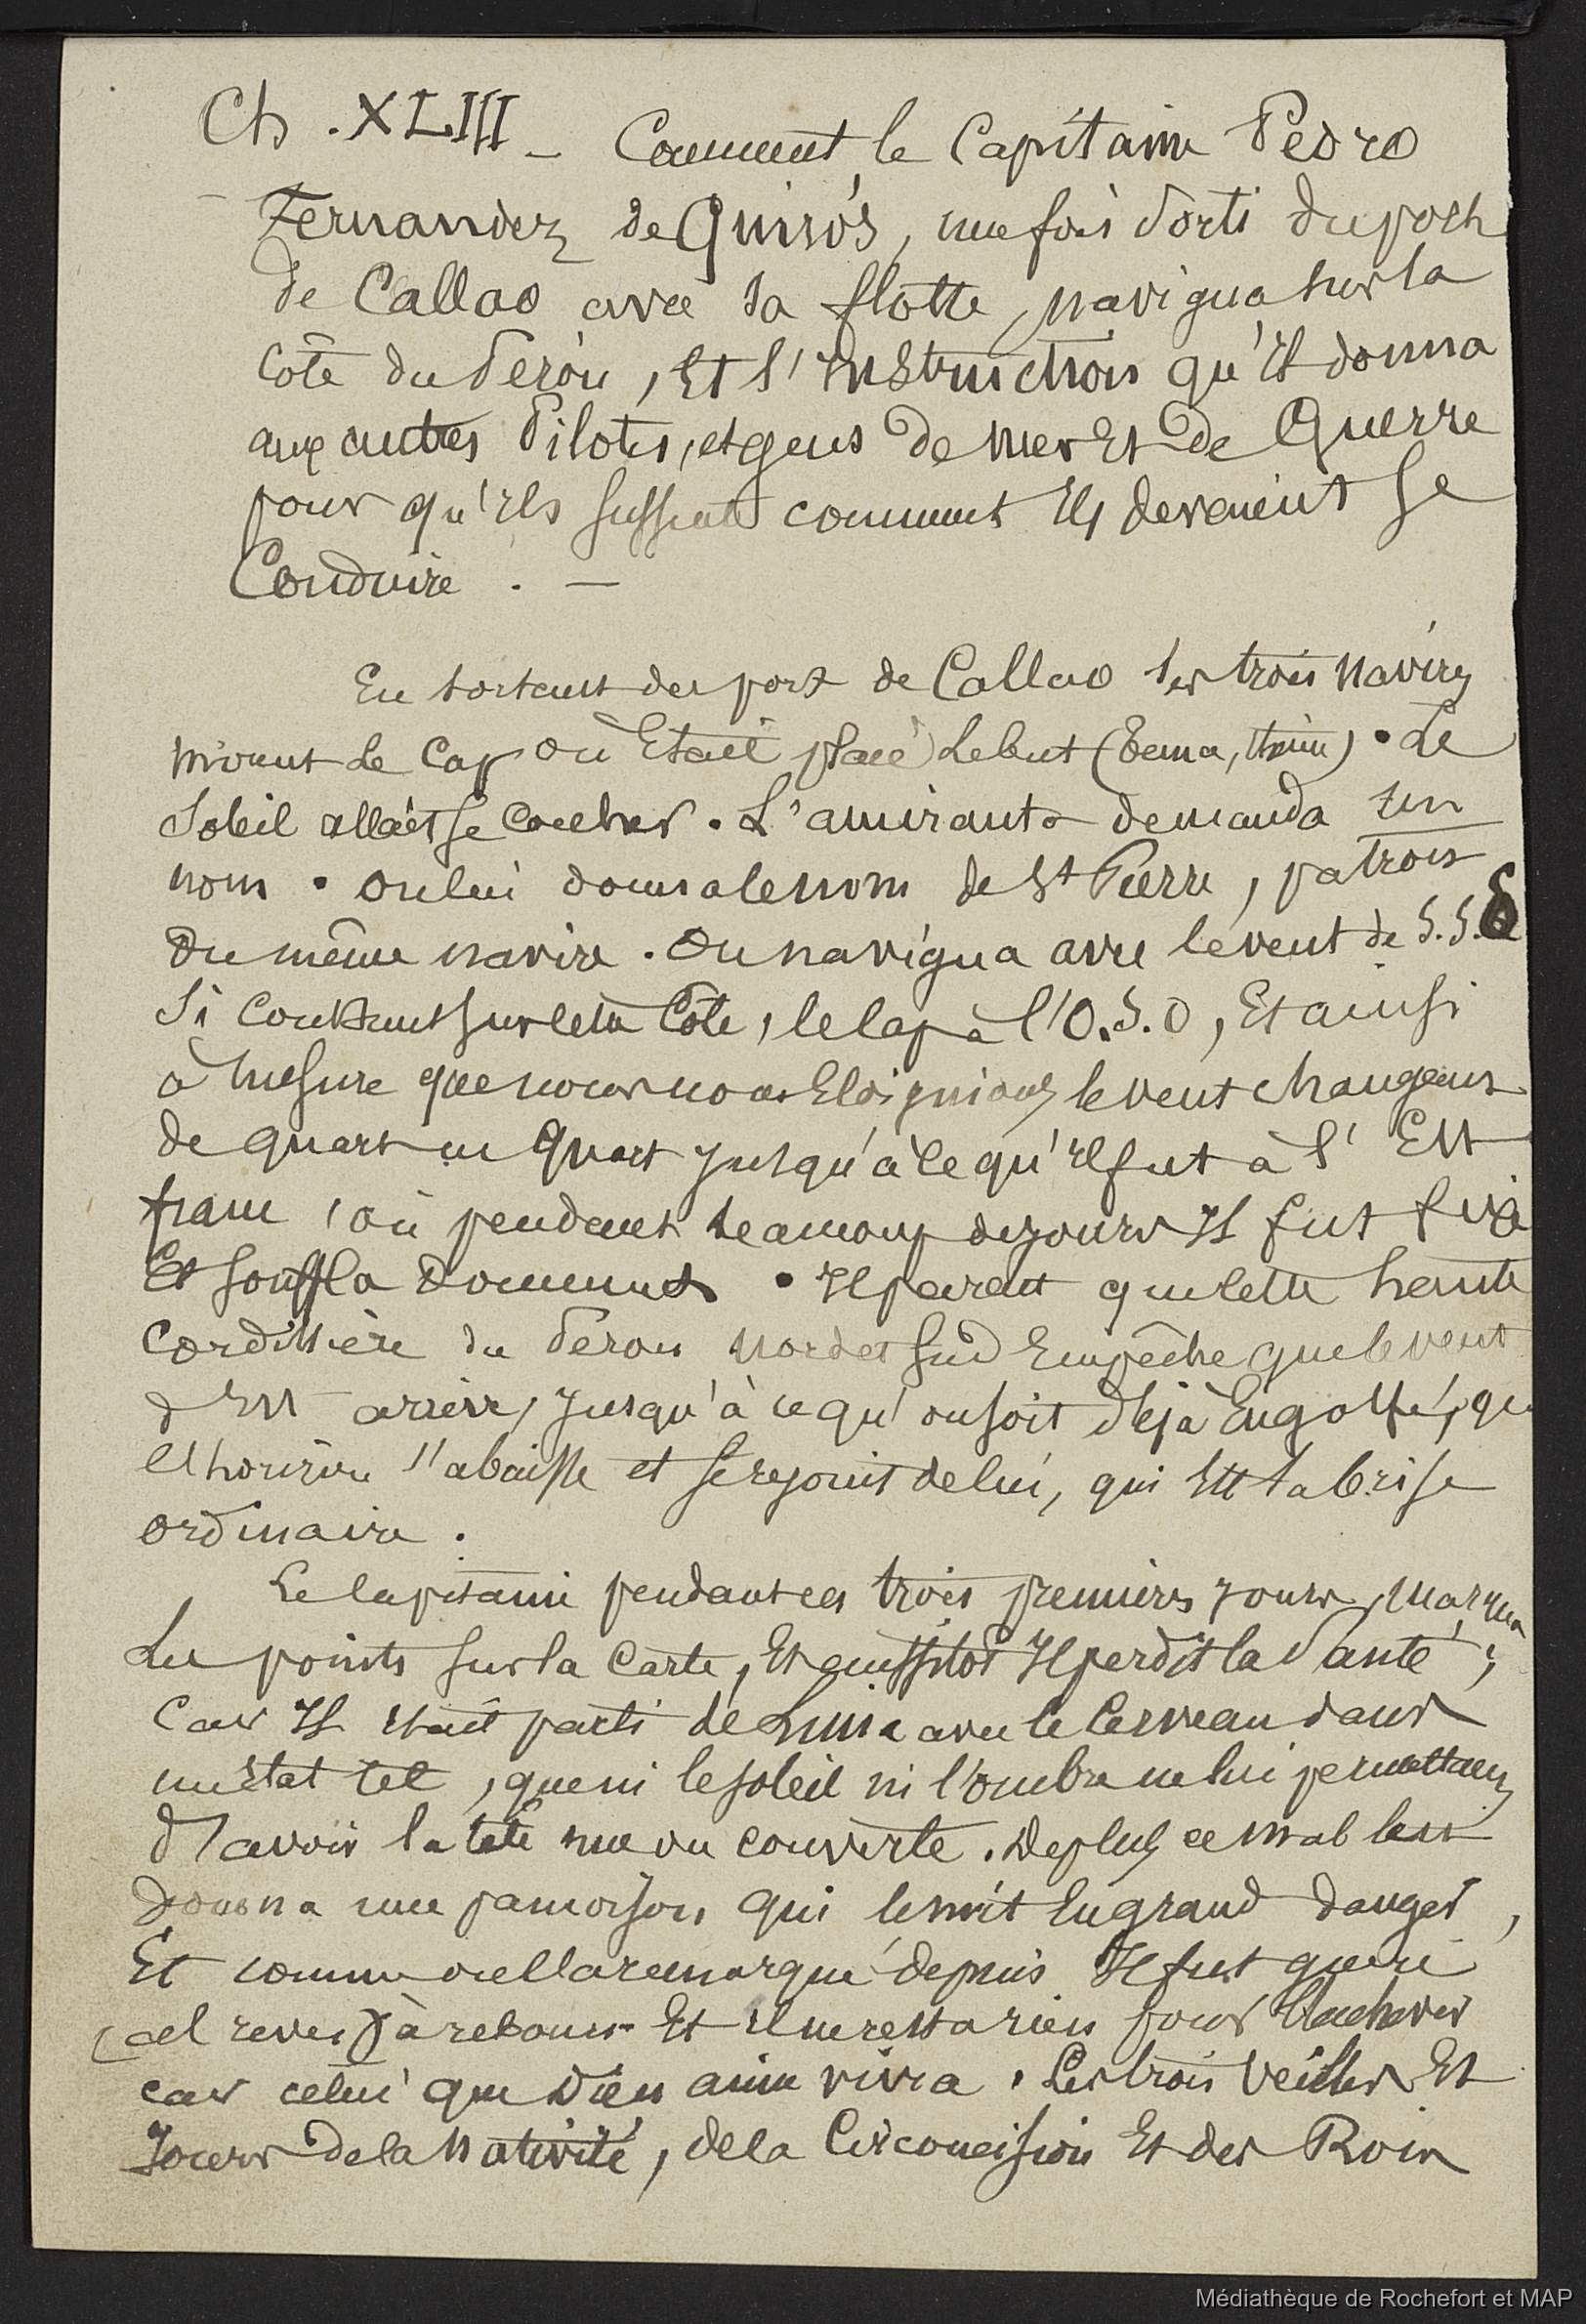 Ch. XLIII — Comment le Capitaine Pedro
Fernandez de Quirós, une fois sorti du port
de Callao avec sa flotte, navigua sur la
côte du Pérou, et l'instruction qu'il donna
aux autres Pilotes, et gens de mer et de Guerre
pour qu'ils sussent comment ils devaient se
Conduire. —
En sortant du port de Callao les trois navires
mirent le Cap où était placé le but (Tema,). Le
Soleil allait se coucher. L'amirante demanda un
nom. on lui donna le nom de St Pierre, patron
du même navire. On navigua avec le vent de S.S.E
si courant sur cette Côte, le cap à l'O.S.O, Et ainsi
à mesure que nous nous éloignions le vent changeant
de quart en quart jusqu'à ce qu'il fut à l'Est
franc, où pendant beaucoup de jours il fut fixe
Et souffla doucement. Il parait que cette haute
Cordillière du Pérou nord et sud empêche que le vent
d'Est arrive, jusqu'à ce qu'on soit déjà engolfé, que
l'horizon s'abaisse et se rejouit de lui, qui est la brise
ordinaire.
Le Capitaine pendant ces trois premiers jours, marqua
les points sur la Carte, Et aussitôt Il perdit la Santé ;
Car Il était parti de Lima avec le Cerveau dans
un état tel, que ni le soleil ni l'ombre ne lui permettaient
d'avoir la tête nue ou couverte. De plus ce mal
donna une pamoison qui le mit en grand danger,
Et comme on l'a remarqué depuis Il fut guéri
(al reves) à rebours Et il ne resta rien pour l'achever
car celui que Dieu aime vivra. Les trois veilles Et
Jours de la Nativité, de la Circoncision Et des Rois